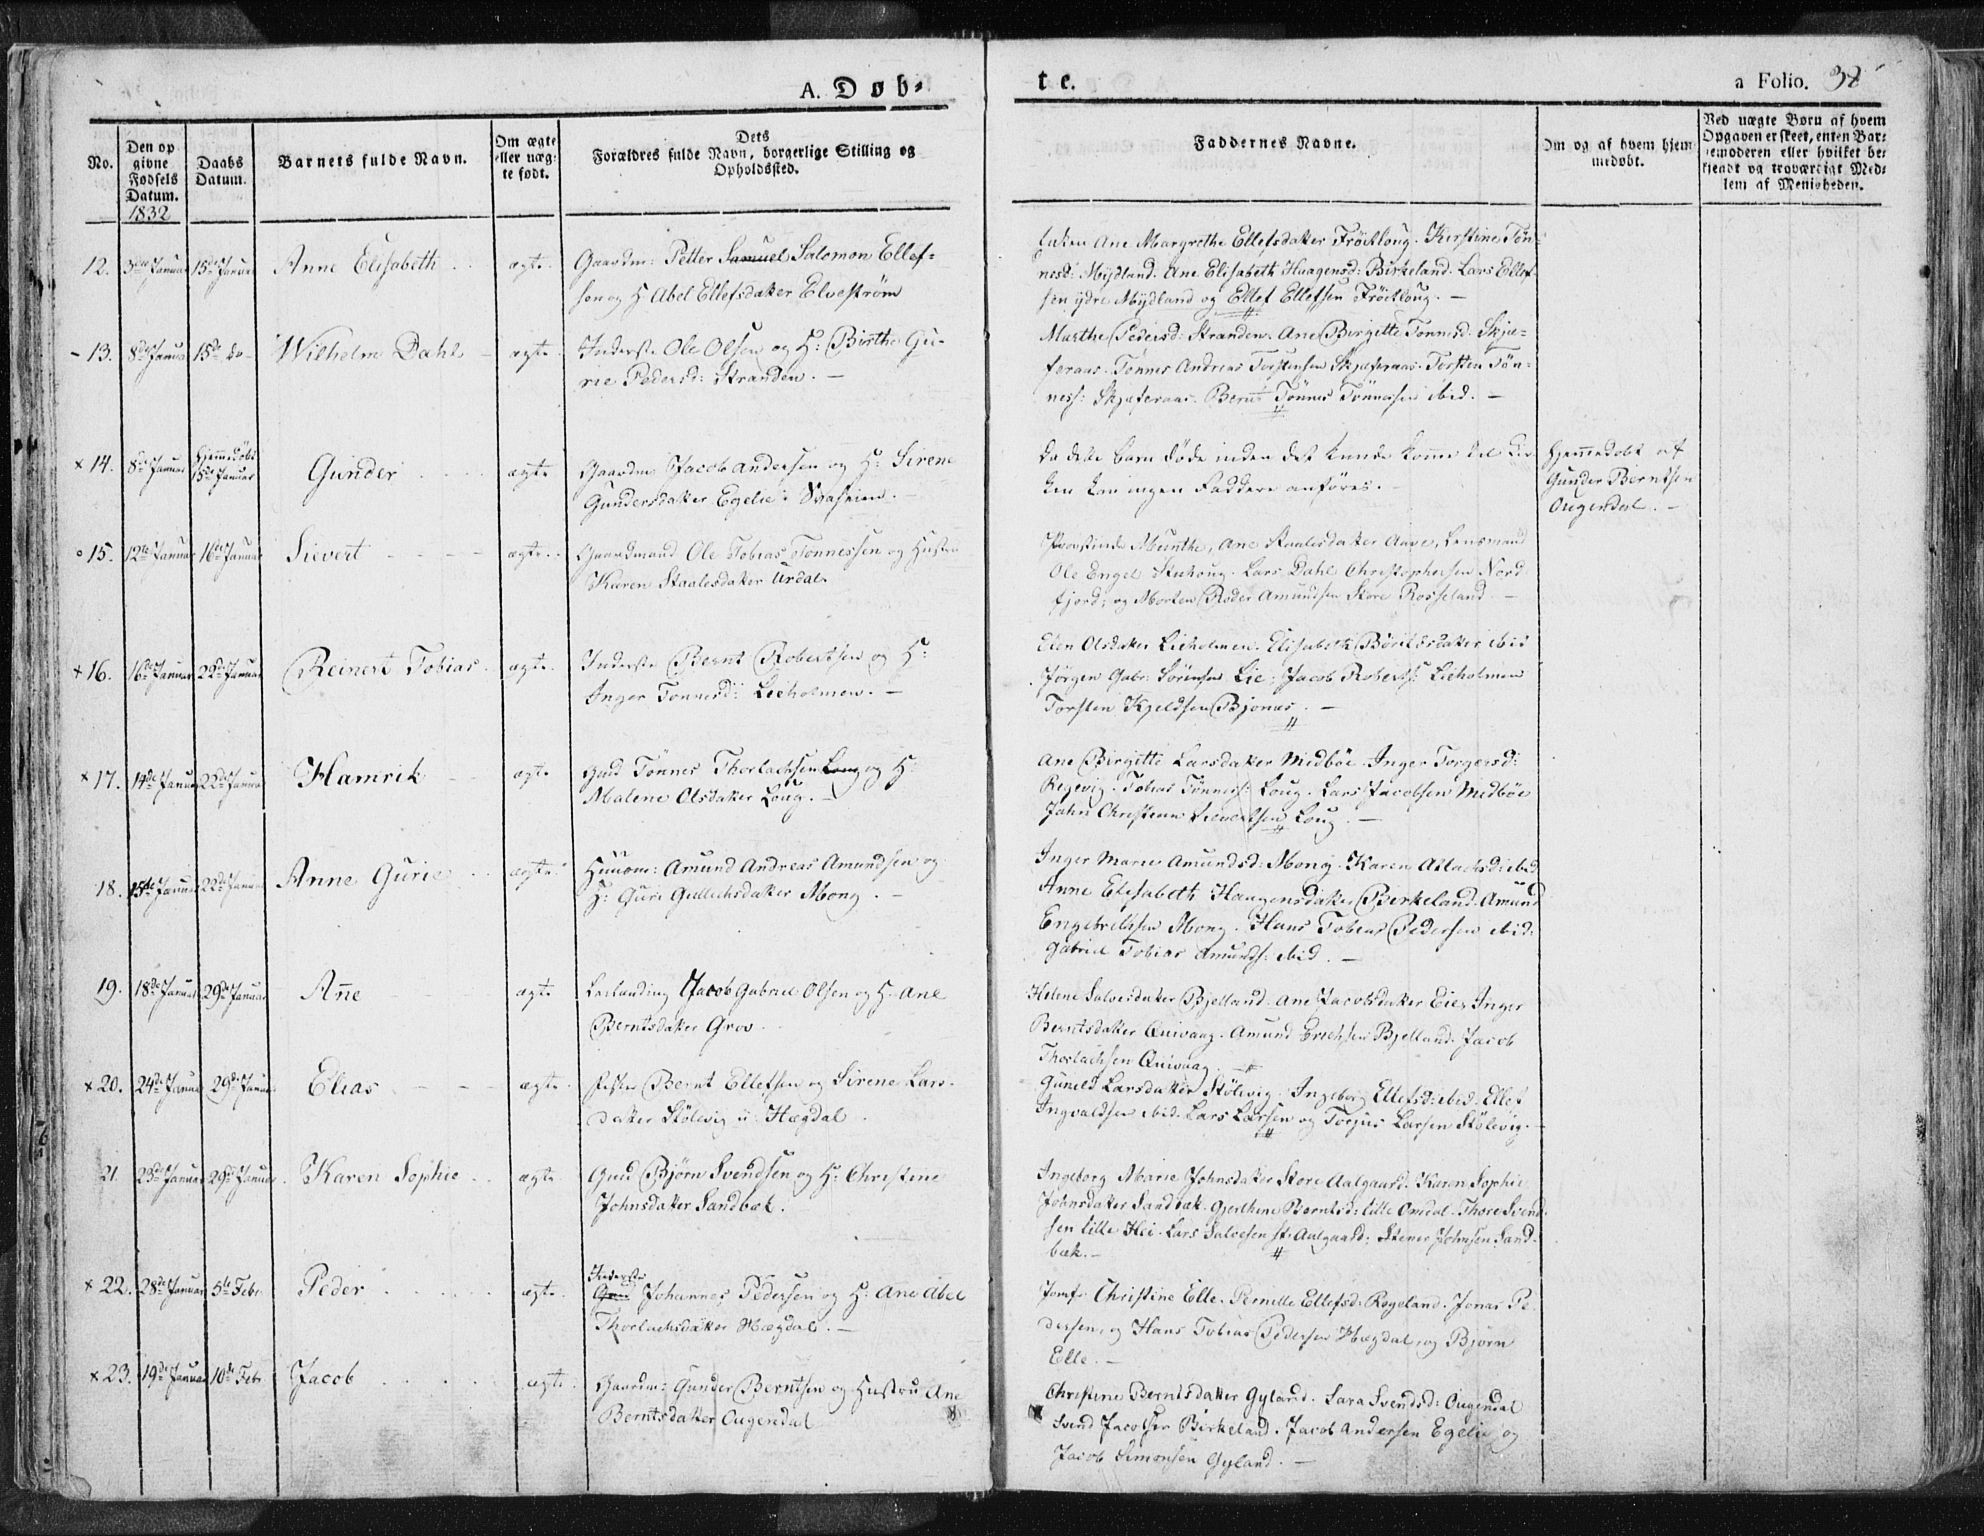 A. Døb=
te.
a Folio. 38
No.
Den op
givne
Fødsels
Datum.
1832
Daabs
Datum.
Barnets fulde Navn.
Om ægte
eller uæg-
te født.
Dets
Forældres fulde Navn, borgerlige Stilling og
Opholdssted.
Faddernes Navne.
Om og af hvem hjem
medøbt.
Ved uægte Børn af hvem
Opgaven er skeet, enten Bar=
nemoderen eller hvilket be=
kjendt og troværdigt Med=
lem af Menigheden.
12. 3die Januar 15de Januar Anne Elisabeth ægte Gaardm: Petter Samuel Salomon Ellef-
sen og H: Abel Ellefsdatter Elvestrøm
Ane Margrethe Ellefsdatter Frøitloug. Kirstine Tøn-
nesd: Mydland. Ane Elisabeth Haagensd: Birkeland. Lars Ellef-
sen ydre Mydland og Ellef Ellefsen Frøitloug. –
13. 8de Januar 15de do Wilhelm Dahl ægte Inderste Ole Olsen og H: Birthe Gu-
rie Pedersd: Stranden. –
Marthe Pedersd: Stranden. Ane Birgitte Tønnesd: Skje-
feraas. Tønnes Andreas Torstensen Skjeferaas. Torsten Tøn-
ness: Skjeferaas. Bernt Tønnes Tønnessen ibid. –
× 14. 8de Januar Hjemmedøbt
15de Januar Gunder ægte Gaardm: Jacob Andersen og H: Sirene
Gundersdatter Egelie i Svaheien.
Da dette barn døde inden det kunde komme til Kir-
ken kan ingen Faddere anføres. –
Hjemmedøbt af
Gunder Berntsen
Ougendal. –
15. 12te Januar 16de Januar Sievert ægte Gaardmand Ole Tobias Tønnessen og Hustru
Karen Staalesdatter Urdal
Provstinde Munthe, Ane Staalesdatter Aase, Lensmand
Ole Engel Stenhoug. Lars Dahl Christophersen Nord
fjord, og Morten Roder Amundsen Store Rosseland –
× 16. 16de Januar 22de Januar Reinert Tobias ægte Inderste Bernt Robertsen og H:
Inger Tønnesd: Lieholmen. –
Elen Olsdatter Lieholmen. Elisabeth Børildsdatter ibid
Jørgen Gabr: Sørensen Lie. Jacob Roberts: Lieholmen
Torsten Kjeldsen Bjonas. –
× 17. 14de Januar 22de Januar Hamrik ægte Gmd Tønnes Thorlachsen Loug og H:
Malene Olsdatter Loug. –
Ane Birgitte Larsdatter Midbøe. Inger Torgersd:
Regevig. Tobias Tønness: Loug. Lars Jacobsen Midbøe
John Christian Sievertsen Loug. –
18. 15de Januar 22de Januar Anne Gurie ægte Huusm: Amund Andreas Amundsen og
H: Guri Gullichsdatter Mong. –
Inger Marie Amundsd: Mong. Karen Aslachsd: ibid
Anne Elisabeth Haagensdatter Birkeland. Amund
Engebretsen Mong. Hans Tobias Pedersen ibid:
Gabriel Tobias Amunds: ibid. –
19. 18de Januar 29de Januar Anne ægte Jacob Gabriel Olsen og H: Ane
Berntsdatter Grov.
Helene Salvesdatter Bjelland. Ane Jacobsdatter Eie. Inger
Berntsdatter Qvivaag. Amund Erichsen Bjelland. Jacob
Thorlachsen Qvivaag. –
× 20. 24de Januar 29de Januar Elias ægte Bernt Ellefsen og Sirene Lars-
datter Stølevig i Hægdal.
Guneld Larsdatter Stølevig. Ingeborg Ellefsd: ibid. Ellef
Ingvaldsen ibid. Lars Larsen og Torjus Larsen Stølevig.
21. 23de Januar 29de Januar Karen Sophie ægte Gmd Bjørn Svendsen og H: Christine
Johnsdatter Sandbæk.
Ingeborg Marie Johnsdatter Store Aalgaard. Karen Sophie
Johnsdatter Sandbæk. Gjerthine Berntsd: lille Omdal. Thore Svend
sen lille Hei. Lars Salvesen st: Aalgaard; Stener Johnsen Sand-
bæk. –
× 22. 28de Januar 5te Febr. Peder ægte Inderste
Gmd Johannes Pedersen og H: Ane Abel
Thorlachsdatter Hægdal. –
Jomfr. Christine Elle. Pernille Ellefsd: Regeland. Jonas Pe-
dersen, og Hans Tobias Pedersen Hægdal, og Bjørn
Elle. –
× 23. 19de Januar 10de Febr Jacob ægte Gaardm: Gunder Berntsen og Hustru Ane
Berntsdatter Ougendal
Christine Berntsdatter Gyland. Sara Svendsd: Ougendal
Svend Jacobsen Birkeland. Jacob Andersen Egelie og
Jacob Simonsen Gyland. –